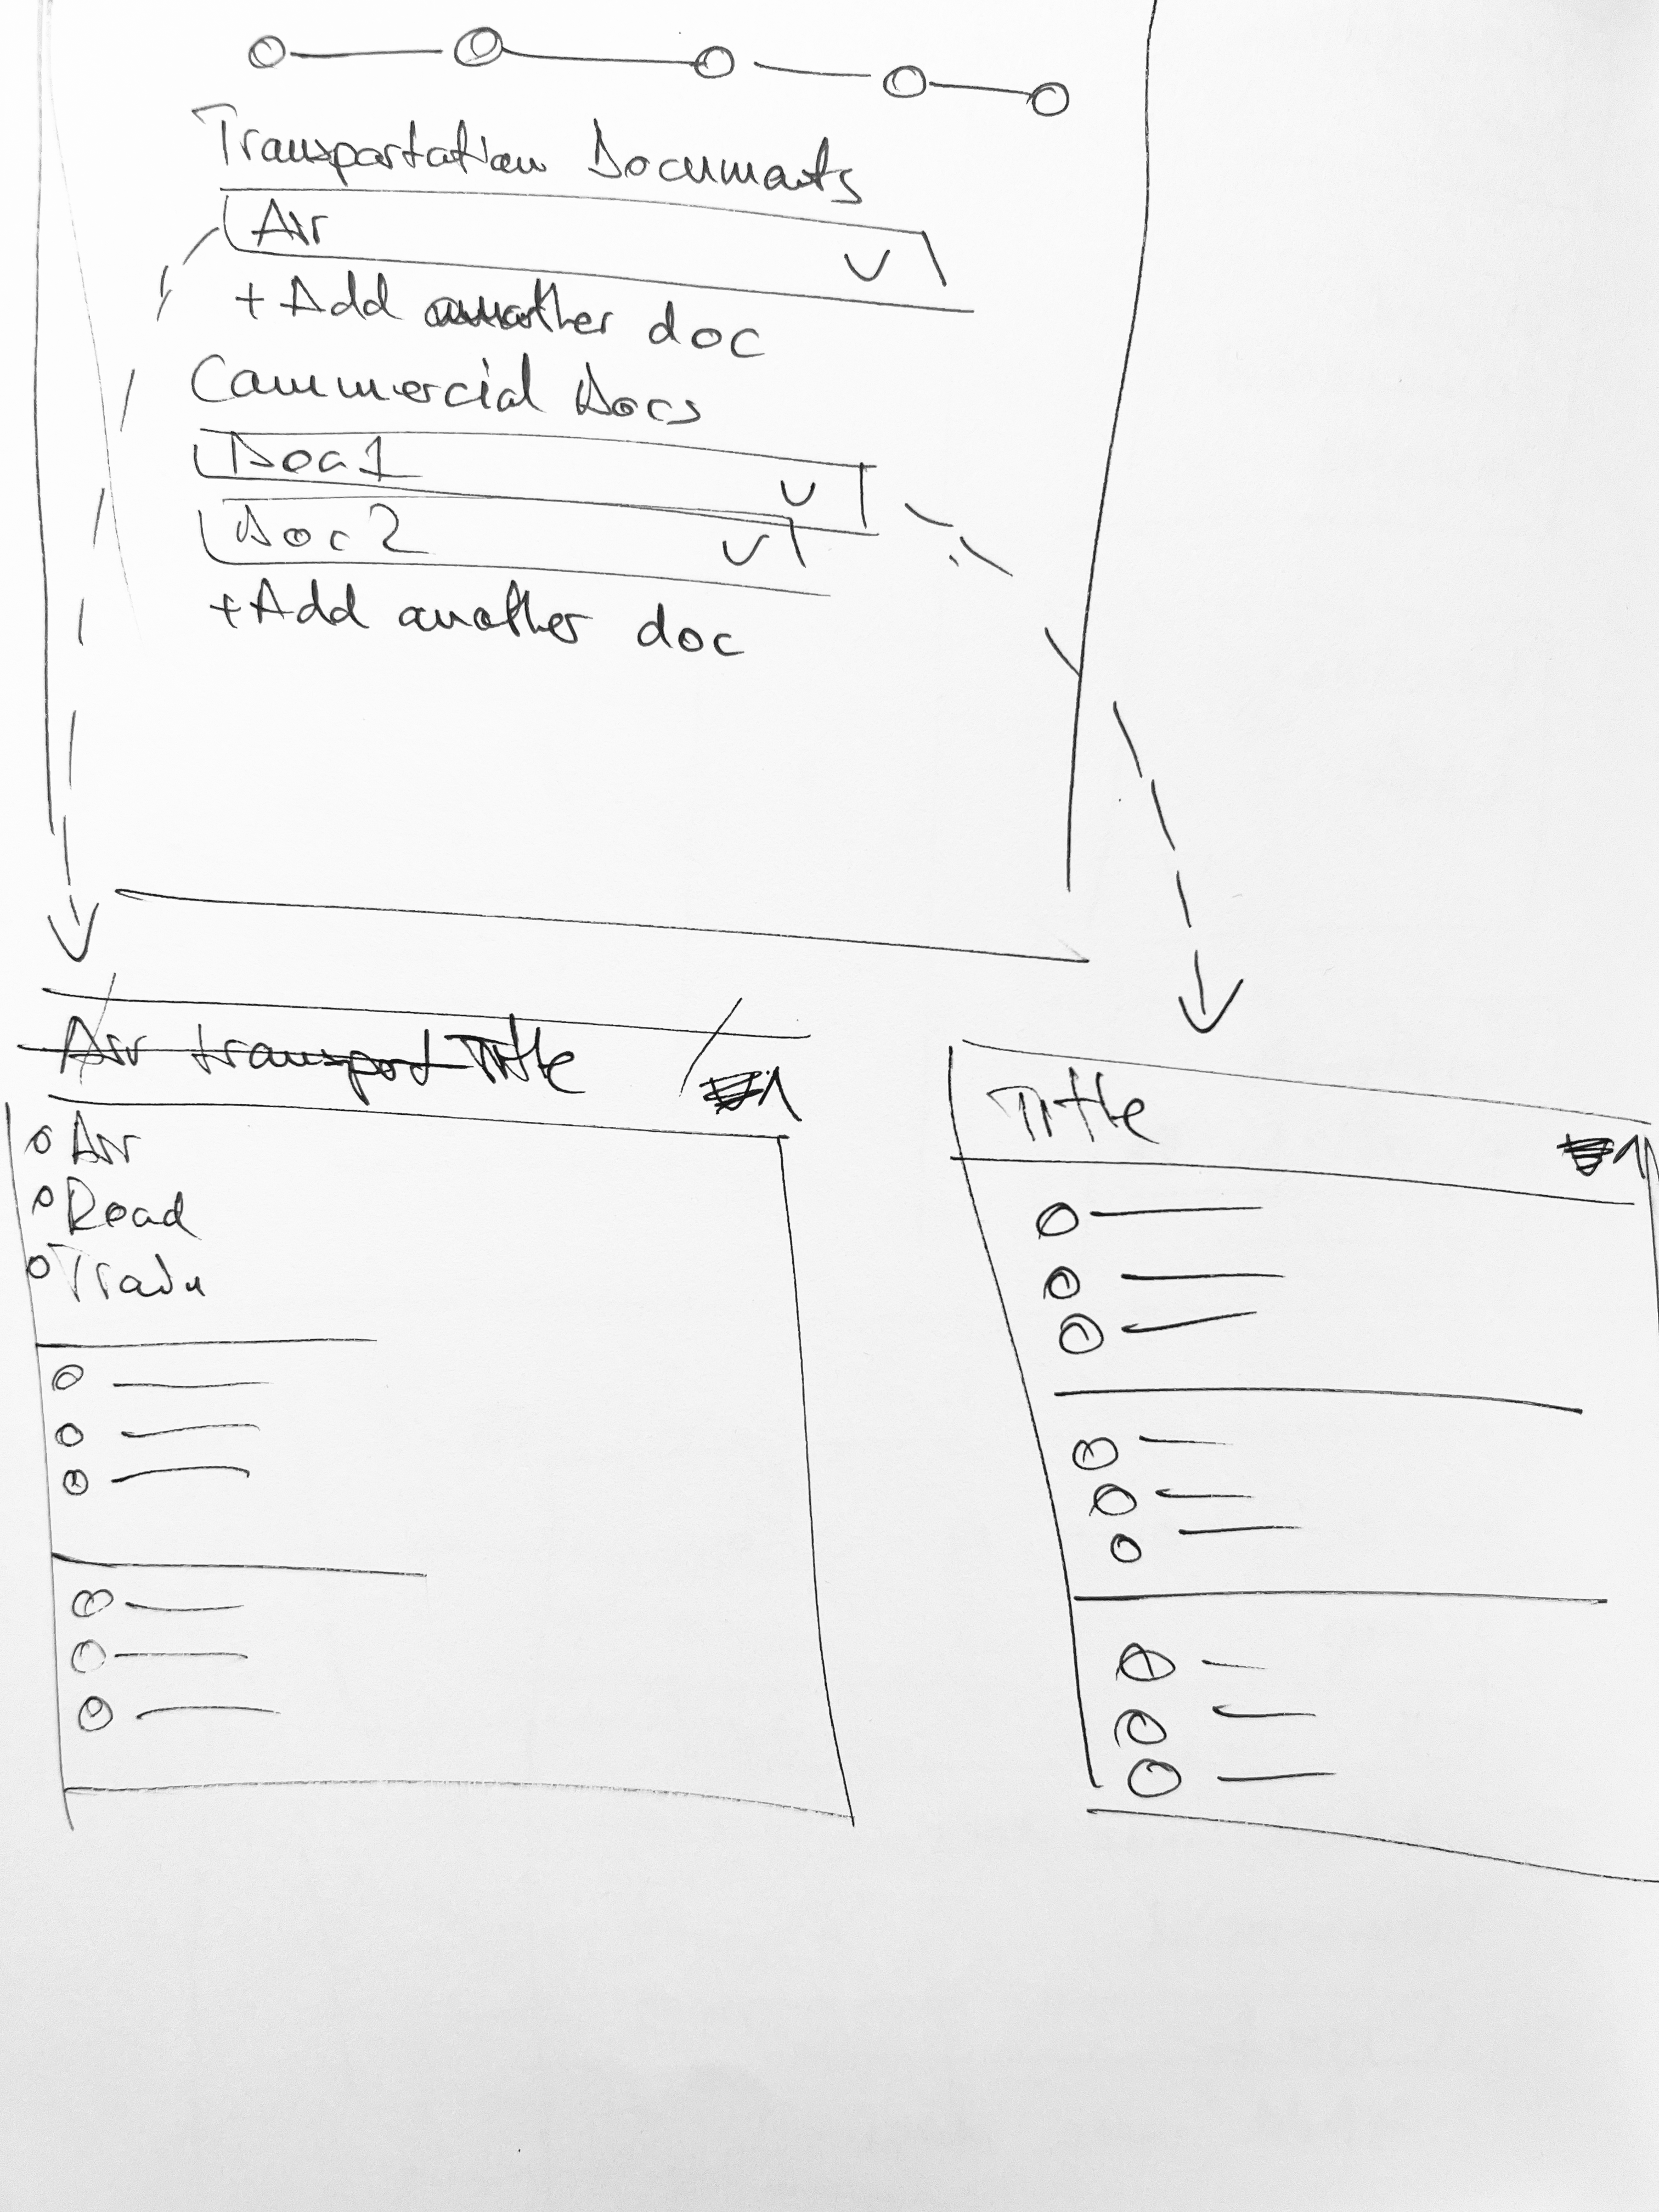 Transportation Documents
Air
+ Add another doc
Commercial Docs
Doc 1
Doc 2
+ Add another doc
Air transport Title
Air
Road
Title